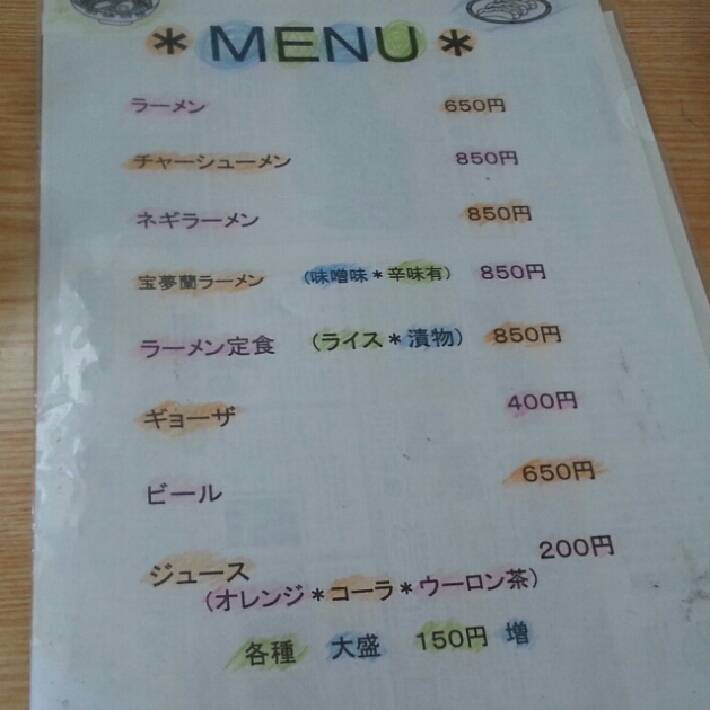 *MENU*
ラーメン 650円
チャーシューメン 850円
ネギラーメン 850円
宝夢蘭ラーメン (味噌味*辛味有) 850円
ラーメン定食 (ライス*漬物) 850円
ギョーザ 400円
ビール 650円
ジュース 200円
(オレンジ*コーラ*ウーロン茶)
各種 大盛 150円 増